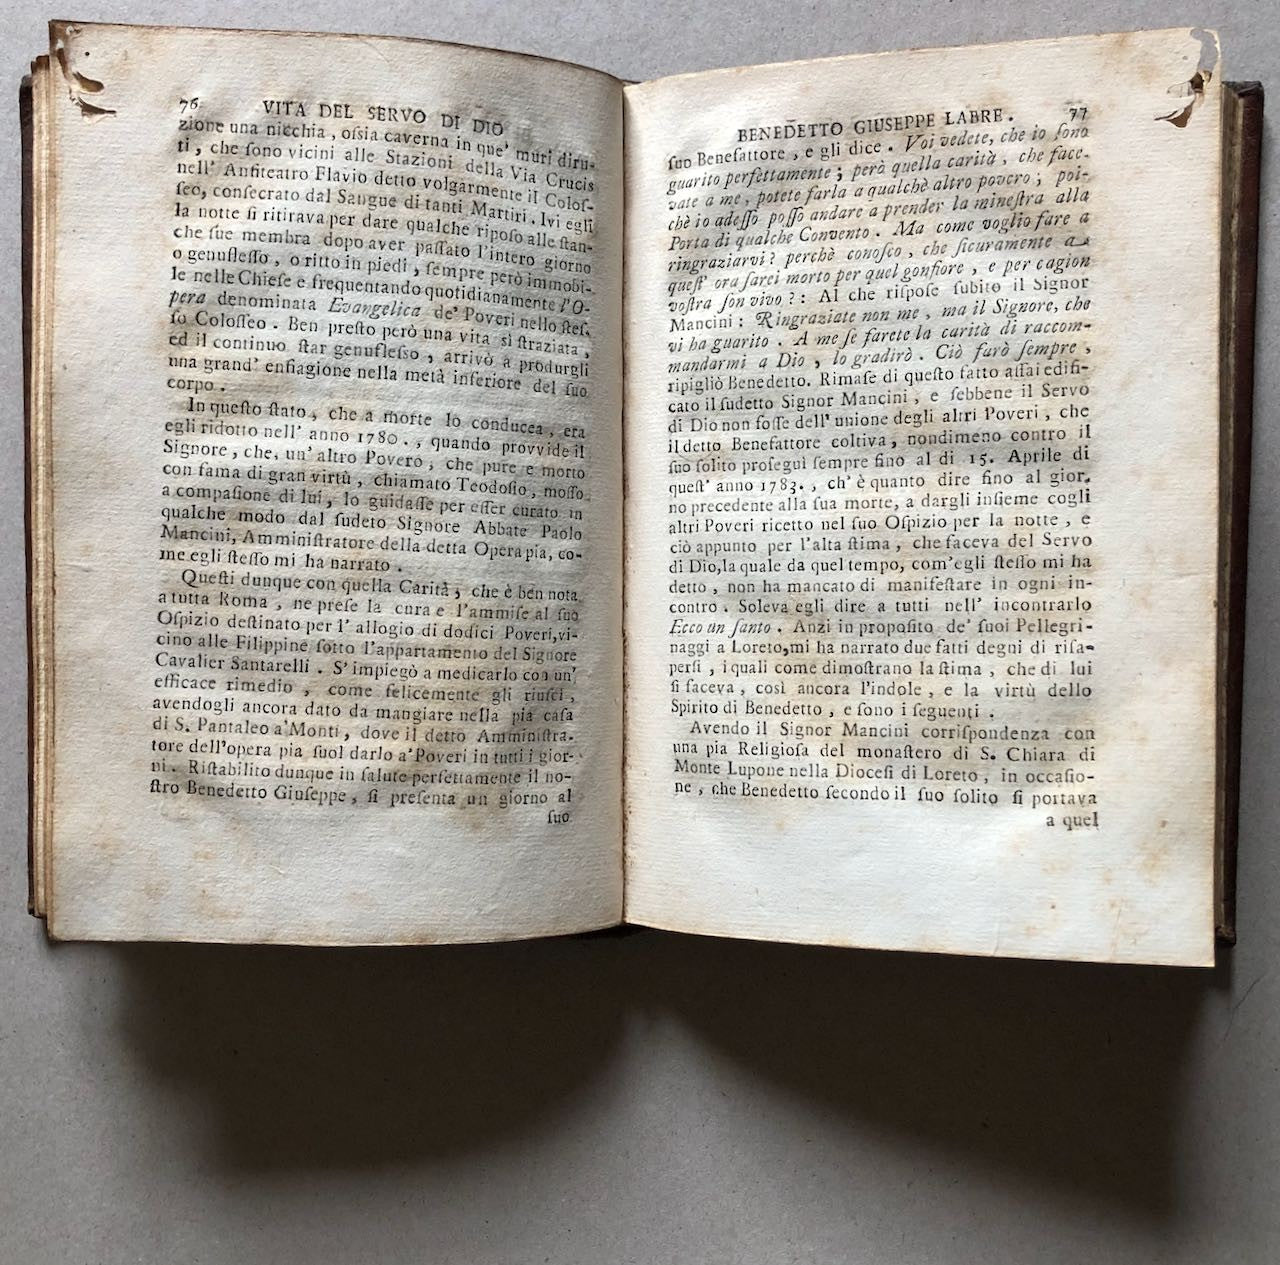 76 VITA DEL SERVO DI DIO
zione una nicchia, oſsia caverna in que' muri diru-
ti, che ſono vicini alle Stazioni della Via Crucis
nell' Anfiteatro Flavio detto volgarmente il Coloſ-
ſeo, conſecrato dal Sangue di tanti Martiri. Ivi egli
la notte ſi ritirava per dare qualche ripoſo alle ſtan-
che ſue membra dopo aver paſſato l'intero giorno
o genufleſſo, o ritto in piedi, ſempre però immobi-
le nelle Chieſe e frequentando quotidianamente l'O-
pera denominata Evangelica de' Poveri nello ſteſ-
ſo Coloſſeo. Ben presto però una vita sì ſtraziata,
ed il continuo ſtar genufleſſo, arrivò a produrgli
una grand' enfiagione nella metà inferiore del ſuo
corpo.
In queſto ſtato, che a morte lo conducea, era
egli ridotto nell' anno 1780., quando provvide il
Signore, che, un' altro Povero, che pure e morto
con fama di gran virtù, chiamato Teodoſio, moſſo
a compaſione di lui, lo guidaſſe per eſſer curato in
qualche modo dal ſudeto Signore Abbate Paolo
Mancini, Amminiſtratore della detta Opera pia, co-
me egli ſteſſo mi ha narrato.
Queſti dunque con quella Carità, che è ben nota
a tutta Roma, ne preſe la cura e l'ammiſe al ſuo
Oſpizio deſtinato per l' allogio di dodici Poveri, vi-
cino alle Filippine ſotto l'appartamento del Signore
Cavalier Santarelli. S' impiegò a medicarlo con un'
efficace rimedio, come felicemente gli riuſcì,
avendogli ancora dato da mangiare nella pia caſa
di S. Pantaleo a'Monti, dove il detto Amminiſtra-
tore dell'opera pia ſuol darlo a' Poveri in tutti i gior-
ni. Riſtabilito dunque in ſalute perfettamente il no-
ſtro Benedetto Giuſeppe, ſi preſenta un giorno al
ſuo
BENEDETTO GIUSEPPE LABRE. 77
ſuo Benefattore, e gli dice. Voi vedete, che io ſono
guarito perfettamente; però quella carità, che face-
vate a me, potete farla a qualchè altro povero; poi-
chè io adeſſo poſſo andare a prender la mineſtra alla
Porta di qualche Convento. Ma come voglio fare a
ringraziarvi? perchè conoſco, che ſicuramente a
queſt' ora ſarei morto per quel gonfiore, e per cagion
voſtra ſon vivo?: Al che riſpoſe ſubito il Signor
Mancini: Ringraziate non me, ma il Signore, che
vi ha guarito. A me ſe farete la carità di raccom-
mandarmi a Dio, lo gradirò. Ciò farò ſempre,
ripigliò Benedetto. Rimaſe di queſto fatto aſſai edifi-
cato il ſudetto Signor Mancini, e ſebbene il Servo
di Dio non foſſe dell' unione degli altri Poveri, che
il detto Benefattore coltiva, nondimeno contro il
ſuo ſolito proſeguì ſempre fino al dì 15. Aprile di
queſt' anno 1783., ch' è quanto dire fino al gior-
no precedente alla ſua morte, a dargli inſieme cogli
altri Poveri ricetto nel ſuo Oſpizio per la notte, e
ciò appunto per l'alta ſtima, che faceva del Servo
di Dio, la quale da quel tempo, com'egli ſteſſo mi ha
detto, non ha mancato di manifeſtare in ogni in-
contro. Soleva egli dire a tutti nell' incontrarlo
Ecco un ſanto. Anzi in propoſito de' ſuoi Pellegri-
naggi a Loreto, mi ha narrato due fatti degni di riſa-
perſi, i quali come dimoſtrano la ſtima, che di lui
ſi faceva, così ancora l'indole, e la virtù dello
Spirito di Benedetto, e ſono i ſeguenti.
Avendo il Signor Mancini corriſpondenza con
una pia Religioſa del monaſtero di S. Chiara di
Monte Lupone nella Dioceſi di Loreto, in occaſio-
ne, che Benedetto ſecondo il ſuo ſolito ſi portava
a quel